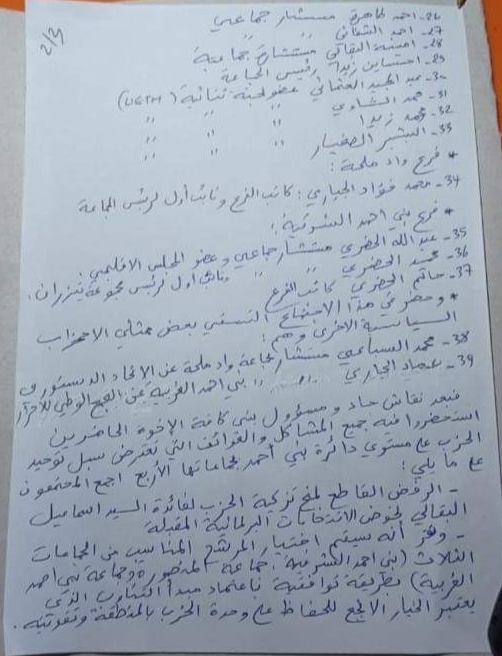 2/3
26- احمد الطاهري مستشار جماعي
27- احمد الشفاني " "
28- امينة البقالي مستشارة جماعية
29- زيدا رئيس الجماعة
30- عبد المجيد العثماني عضو لجنة ثنائية (UGTM)
31- محمد الشاوي " " "
32- محمد زيدا " " "
33- البشير الصغيار " " "
* فرع واد ملحة :
34- محمد فؤاد الجباري : كاتب الفرع ونائب أول لرئيس الجماعة
* فرع بني احمد الشرقية :
35- عبد الله الخضري مستشار جماعي وعضو المجلس الاقليمي .
36- محمد الخضري " " ونائب اول لرئيس مجموعة تيزران .
37- حاتم الخضري كاتب الفرع
* وحضر في هذا الاجتماع التنسيقي بعض ممثلي الاحزاب
السياسية الاخرى وهم :
38- محمد السباعي مستشار جماعة واد ملحة عن الاتحاد الدستوري
39- عماد الجباري " " بني احمد الغربية عن التجمع الوطني للأحرار
فبعد نقاش حاد ومسؤول بين كافة الإخوة الحاضرين
استحضروا فيه جميع المشاكل والعوائق التي تعترض سبل توحيد
الحزب على مستوى دائرة بني أحمد بجماعاتها الأربع اجمع المجتمعون
على ما يلي :
- الرفض القاطع لمنح تزكية الحزب لفائدة السيد اسماعيل
البقالي لخوض الانتخابات البرلمانية المقبلة
- أنه سيتم اختيار المرشح المناسب من الجماعات
الثلاث (بني احمد الشرقية . جماعة المنصورة وجماعة بني احمد
الغربية) بطريقة توافقية باعتماد مبدأ التناوب الذي
يعتبر الخيار الأنجع للحفاظ على وحدة الحزب بالمنطقة وتقويته .